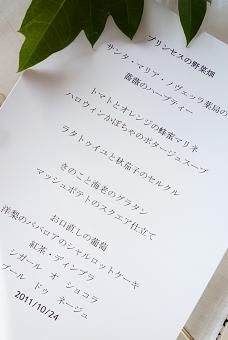 プリンセスの野菜畑
サンタ・マリア・ノヴェッラ薬局の
薔薇のハーブティー
トマトとオレンジの蜂蜜マリネ
ハロウィンかぼちゃのポタージュスープ
ラタトゥイユと秋茄子のセルクル
きのこと海老のグラタン
マッシュポテトのスクエア仕立て
お口直しの葡萄
洋梨のババロアのシャルロットケーキ
紅茶・ディンブラ
シガール オ ショコラ
ブール ドゥ ネージュ
2011/10/24